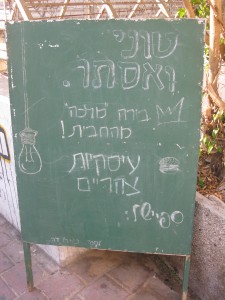 טוני
ואסתר.
בירה "מלכה"
מהחבית!
עיסקיות
צהריים
ספיישל: